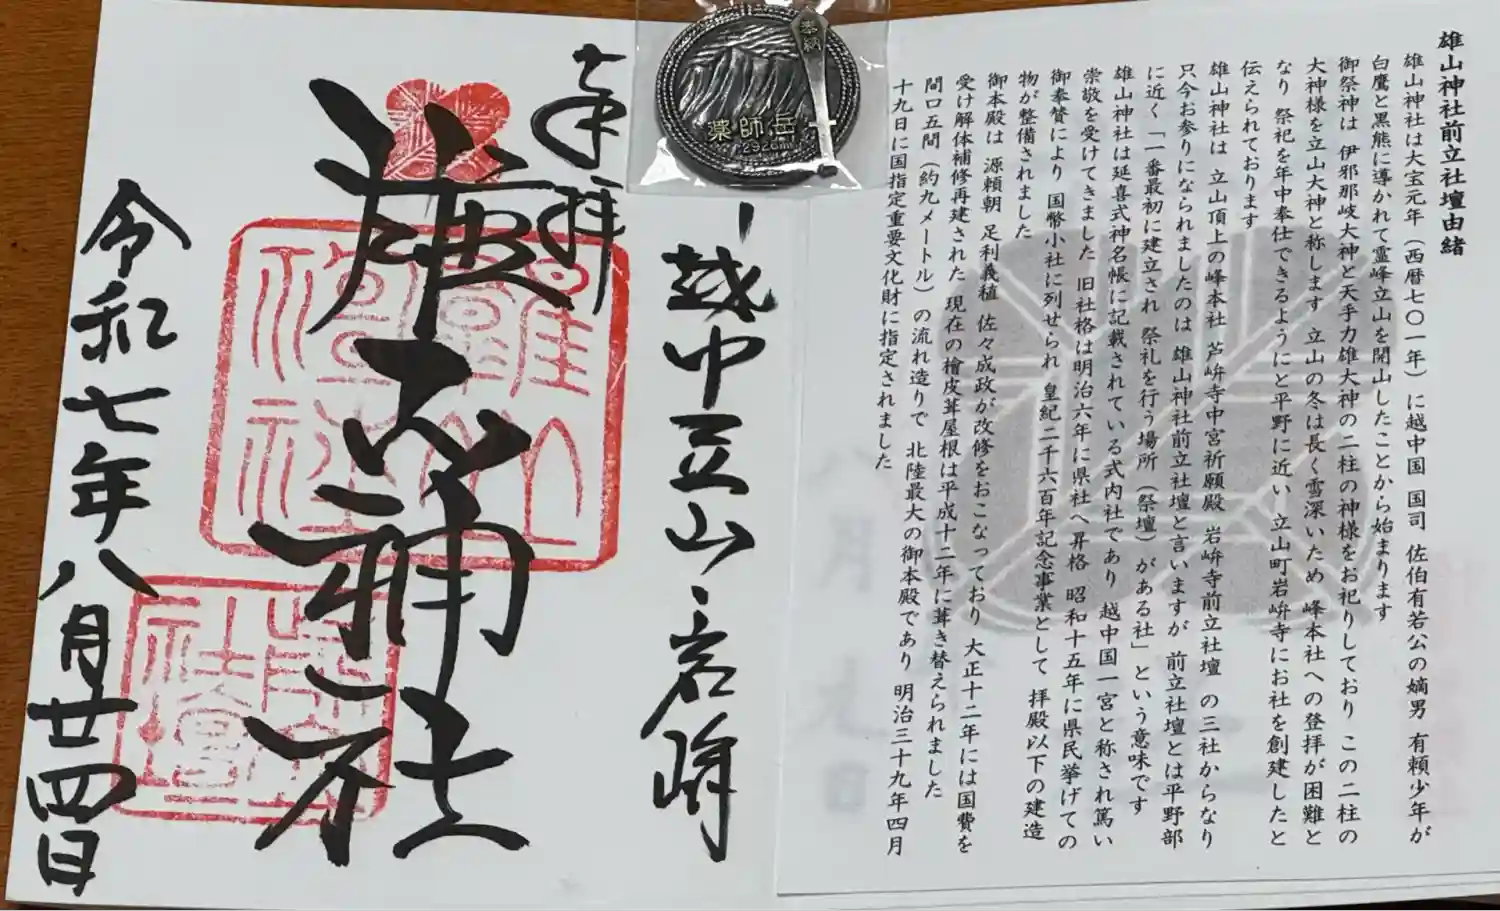 雄山神社前立社壇由緒
雄山神社は大宝元年（西暦七〇一年）に越中国 国司 佐伯有若公の嫡男 有頼少年が
白鷹と黒熊に導かれて霊峰立山を開山したことから始まります
御祭神は 伊邪那岐大神と天手力雄大神の二柱の神様をお祀りしており この二柱の
大神様を立山大神と称します 立山の冬は長く雪深いため 峰本社への登拝が困難と
なり 祭祀を年中奉仕できるようにと平野に近い 立山町岩峅寺にお社を創建したと
伝えられております
雄山神社は 立山頂上の峰本社 芦峅寺中宮祈願殿 岩峅寺前立社壇 の三社からなり
只今お参りになられましたのは 雄山神社前立社壇と言いますが 前立社壇とは平野部
に近く「一番最初に建立され 祭礼を行う場所（祭壇）がある社」という意味です
雄山神社は延喜式神名帳に記載されている式内社であり 越中国一宮と称され篤い
崇敬を受けてきました 旧社格は明治六年に県社へ昇格 昭和十五年に県民挙げての
御奉賛により 国幣小社に列せられ 皇紀二千六百年記念事業として 拝殿以下の建造
物が整備されました
御本殿は 源頼朝 足利義植 佐々成政が改修をおこなっており 大正十二年には国費を
受け解体補修再建された 現在の檜皮葺屋根は平成十二年に葺き替えられました
間口五間（約九メートル）の流れ造りで 北陸最大の御本殿であり 明治三十九年四月
十九日に国指定重要文化財に指定されました
奉納
薬師岳
2926m
越中立山 岩峅
奉拝
雄山神社
雄山神社
令和七年八月廿四日